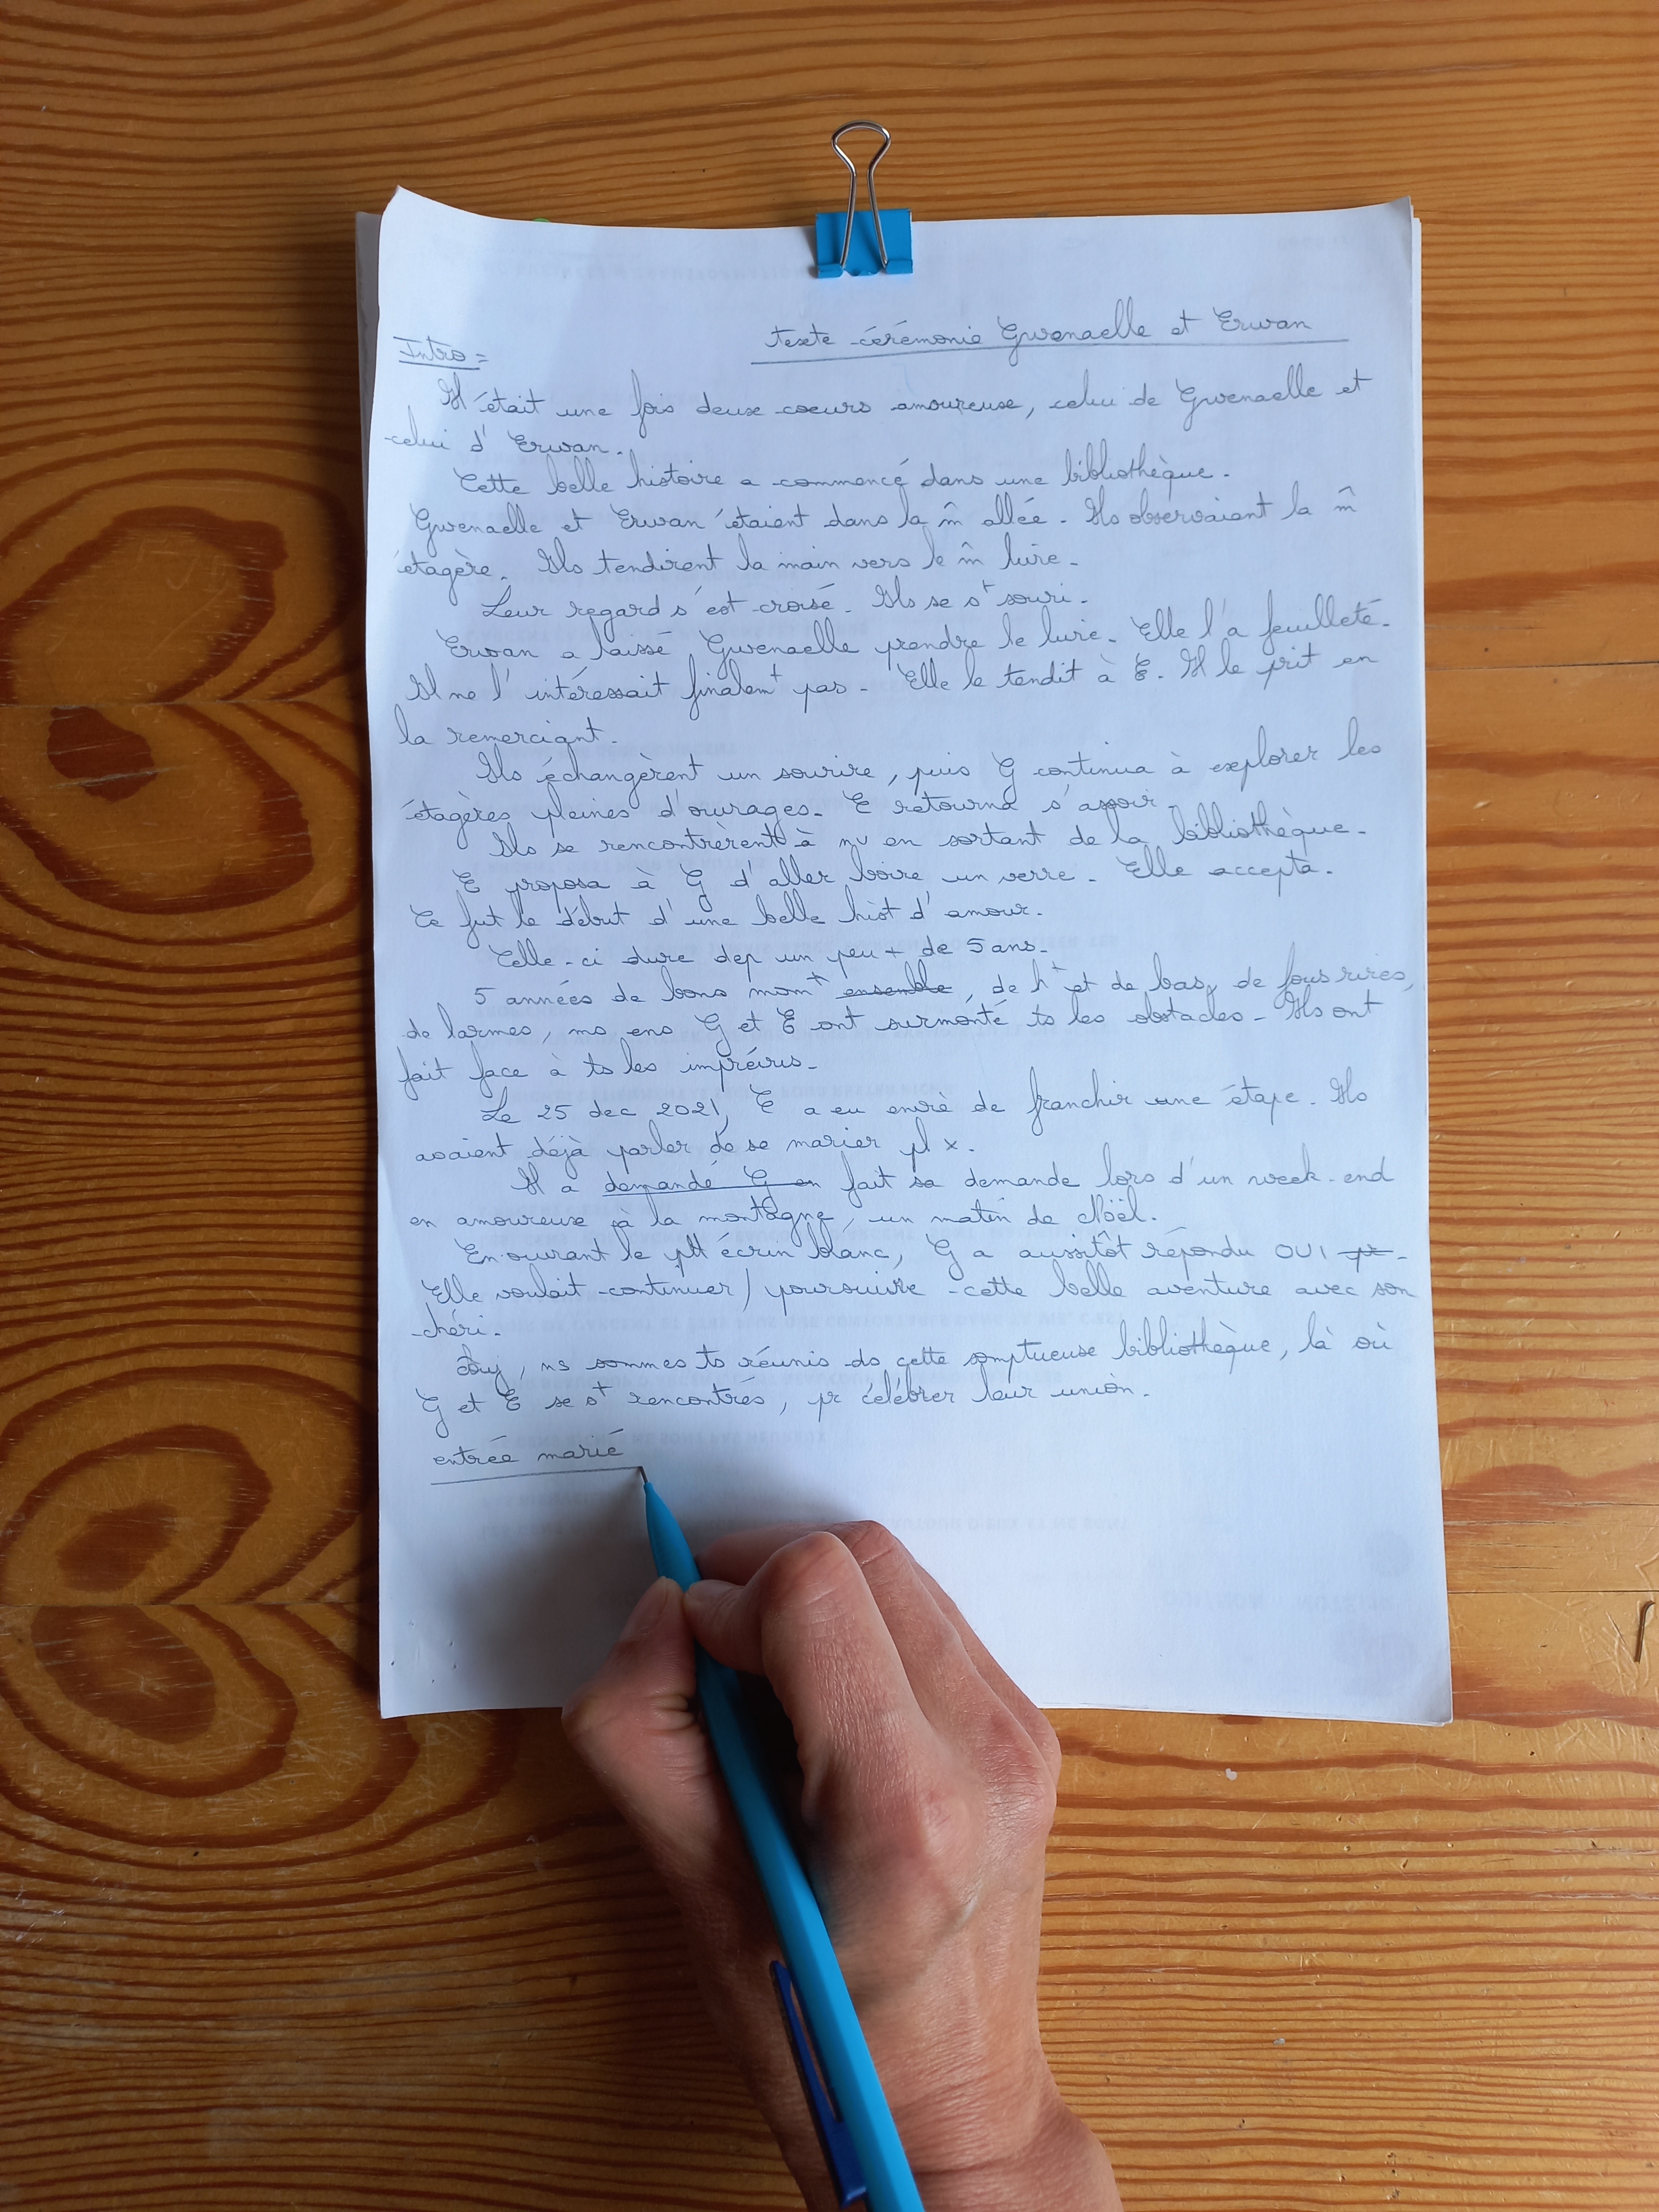 texte cérémonie Gwenaelle et Erwan
Intro =
Il était une fois deux coeurs amoureux, celui de Gwenaelle et
celui d'Erwan.
Cette belle histoire a commencé dans une bibliothèque.
Gwenaelle et Erwan étaient dans la m̂ allée. Ils observaient la m̂
étagère. Ils tendirent la main vers le m̂ livre.
Leur regard s'est croisé. Ils se st souri.
Erwan a laissé Gwenaelle prendre le livre. Elle l'a feuilleté.
Il ne l'intéressait finalemt pas. Elle le tendit à E. Il le prit en
la remerciant.
Ils échangèrent un sourire, puis G continua à explorer les
étagères pleines d'ouvrages. E retourna s'assoir.
Ils se rencontrèrent à nv en sortant de la bibliothèque.
E proposa à G d'aller boire un verre. Elle accepta.
Ce fut le début d'une belle hist d'amour.
Celle-ci dure dep un peu + de 5 ans.
5 années de bons momt ensemble, de ht et de bas, de fous rires,
de larmes, ms ens G et E ont surmonté ts les obstacles. Ils ont
fait face à ts les imprévus.
Le 25 dec 2021, E a eu envie de franchir une étape. Ils
avaient déjà parler de se marier pl x.
Il a demandé G en fait sa demande lors d'un week-end
en amoureux à la montagne, un matin de Noël.
En ouvrant le ptt écrin blanc, G a aussitôt répondu OUI pr.
Elle voulait continuer / poursuivre cette belle aventure avec son
chéri.
Auj, ns sommes ts réunis ds cette somptueuse bibliothèque, là où
G et E se st rencontrés, pr célébrer leur union.
entrée marié